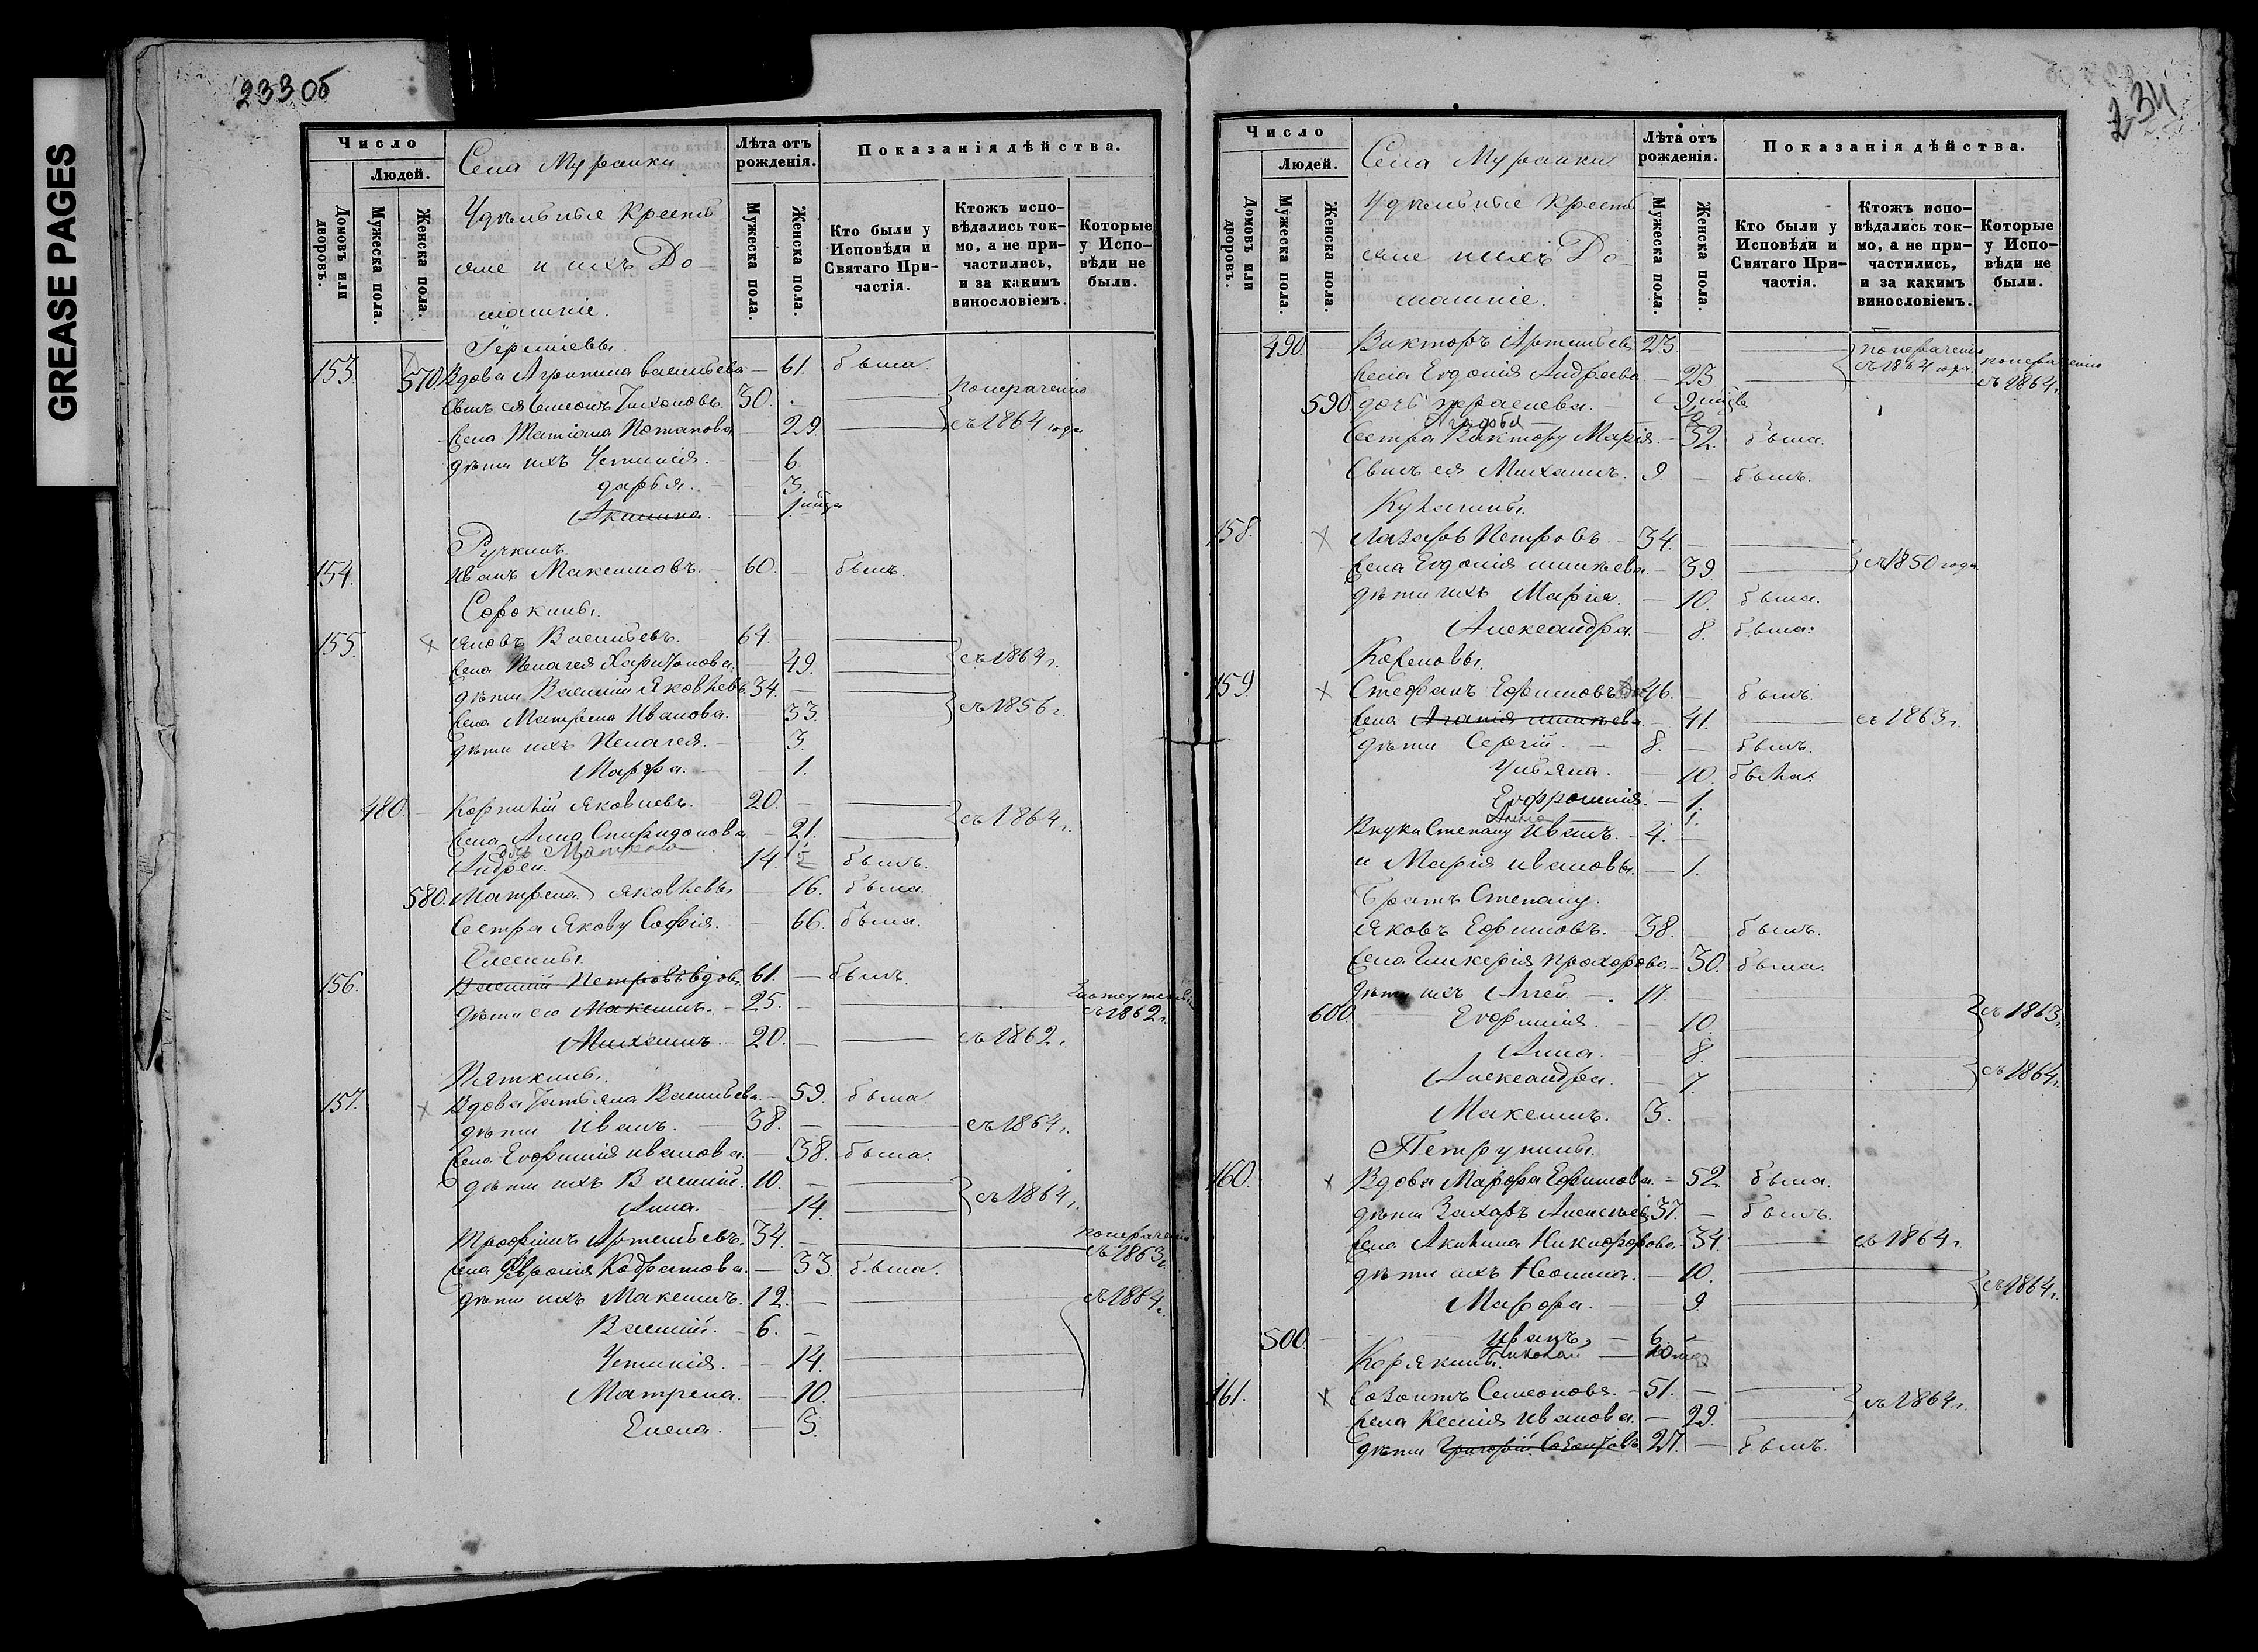 GREASE PAGES
233 об
Число
Людей.
Домовъ или дворовъ.
Мужеска пола.
Женска пола.
Села Муранки
Удѣльные Кресть
яне и ихъ До
машніе.
Лѣта отъ рожденія.
Мужеска пола.
Женска пола.
Показанія дѣйства.
Кто были у Исповѣди и Святаго При-частія.
Ктожъ испо-вѣдались ток-мо, а не при-частились, и за какимъ винословіемъ.
Которые у Испо-вѣди не были.
153. 570 Вдова Агрипина Васильева — 61. была.
Сынъ ея Симеонъ Тихоновъ. 30. — понераченію
Жена Татіана Потапова — 29. съ 1864 года
дѣти ихъ Устинія. — 6.
дарья. — 3.
Акилина. — 1
Ручкинъ
154. Иванъ Максимовъ. — 60. — былъ.
Сорокины.
155. Яковъ Васильевъ. 64. —
Жена Пелагея Харитонова. — 49. съ 1864 г.
дѣти Василій Яковлевъ. 34. —
Жена Матрена Иванова. — 33. съ 1856 г.
дѣти ихъ Пелагея. — 3.
Марфа. — 1.
480. Корнилій Яковлевъ. 20. —
Жена Анна Спиридонова — 21. съ 1864 г.
дочь Матрена
Андрей. 14. былъ.
580. Матрена Яковлевы — 16. была.
Сестра Якову Софія. — 66. была.
156. Василій Петровъ вдов. 61. — былъ.
дѣти его Максимъ. — 25. — съ 1862 г.
Михаилъ. — 20. — съ 1862 г.
Пяткины.
157. Вдова Татьяна Васильева. — 59. была.
дѣти Иванъ. 38. — съ 1864 г.
Жена Евфимія Иванова. — 38. была.
дѣти ихъ Василій. 10. —
Анна. 14. съ 1864 г.
Трофимъ Артемьевъ. 34. — понераченію съ 1863 г.
Жена Февронія Кодратова. — 33. была.
дѣти ихъ Максимъ. 12. — съ 1864 г.
Василій. — 6. —
Устинія. — 14.
Матрена. — 10.
Елена. — 3.
234
Число
Людей.
Домовъ или дворовъ.
Мужеска пола.
Женска пола.
Села Муранки
Удѣльные Кресть
яне и ихъ До
машніе.
Лѣта отъ рожденія.
Мужеска пола.
Женска пола.
Показанія дѣйства.
Кто были у Исповѣди и Святаго При-частія.
Ктожъ испо-вѣдались ток-мо, а не при-частились, и за какимъ винословіемъ.
Которые у Испо-вѣди не были.
490. Викторъ Артемьевъ 23 понераченію съ 1864 года.
Жена Евдокія Андреева — 23 понераченію съ 1864 г.
590. дочь
Сестра Виктору Марія. — 32. была.
Сынъ ея Михаилъ. 9 — былъ.
158. Лазарь Петровъ. 34. —
Жена Евдокія — 39. съ 1850 года
дѣти ихъ Марія. — 10. была.
Александра. — 8. была.
159. Стефанъ Ефимовъ 46. — былъ.
Жена — 41. съ 1863 г.
дѣти Сергій. — 8. — былъ.
Ульяна. — 10. была.
Евфросинія. — 1.
Анна 1.
Внуки Степану Иванъ. — 4. —
и Марія Ивановы. — 1.
Братъ Степану.
Яковъ Ефимовъ. 38. — былъ.
Жена Гликерія Прохорова — 30. была.
дѣти ихъ —. 17. —
600. Евфимія. — 10. съ 1863 г.
Анна. — 8.
Александра. — 7. съ 1864 г.
Максимъ. 3.
Петрунины.
160. Вдова Марфа Ефимова. — 52. была.
дѣти Захаръ Алексѣевъ 37. — былъ.
Жена Акилина Никифорова — 34. съ 1864 г.
дѣти ихъ Неонила. — 10.
Марфа. — 9. съ 1864 г.
500. Иванъ, — 6. —
Николай —
Корякины.
161. Созонтъ Семеоновъ. — 51. —
Жена Ксенія Иванова. — 29. съ 1864 г.
дѣти Григорій Созонтовъ 27. — былъ.